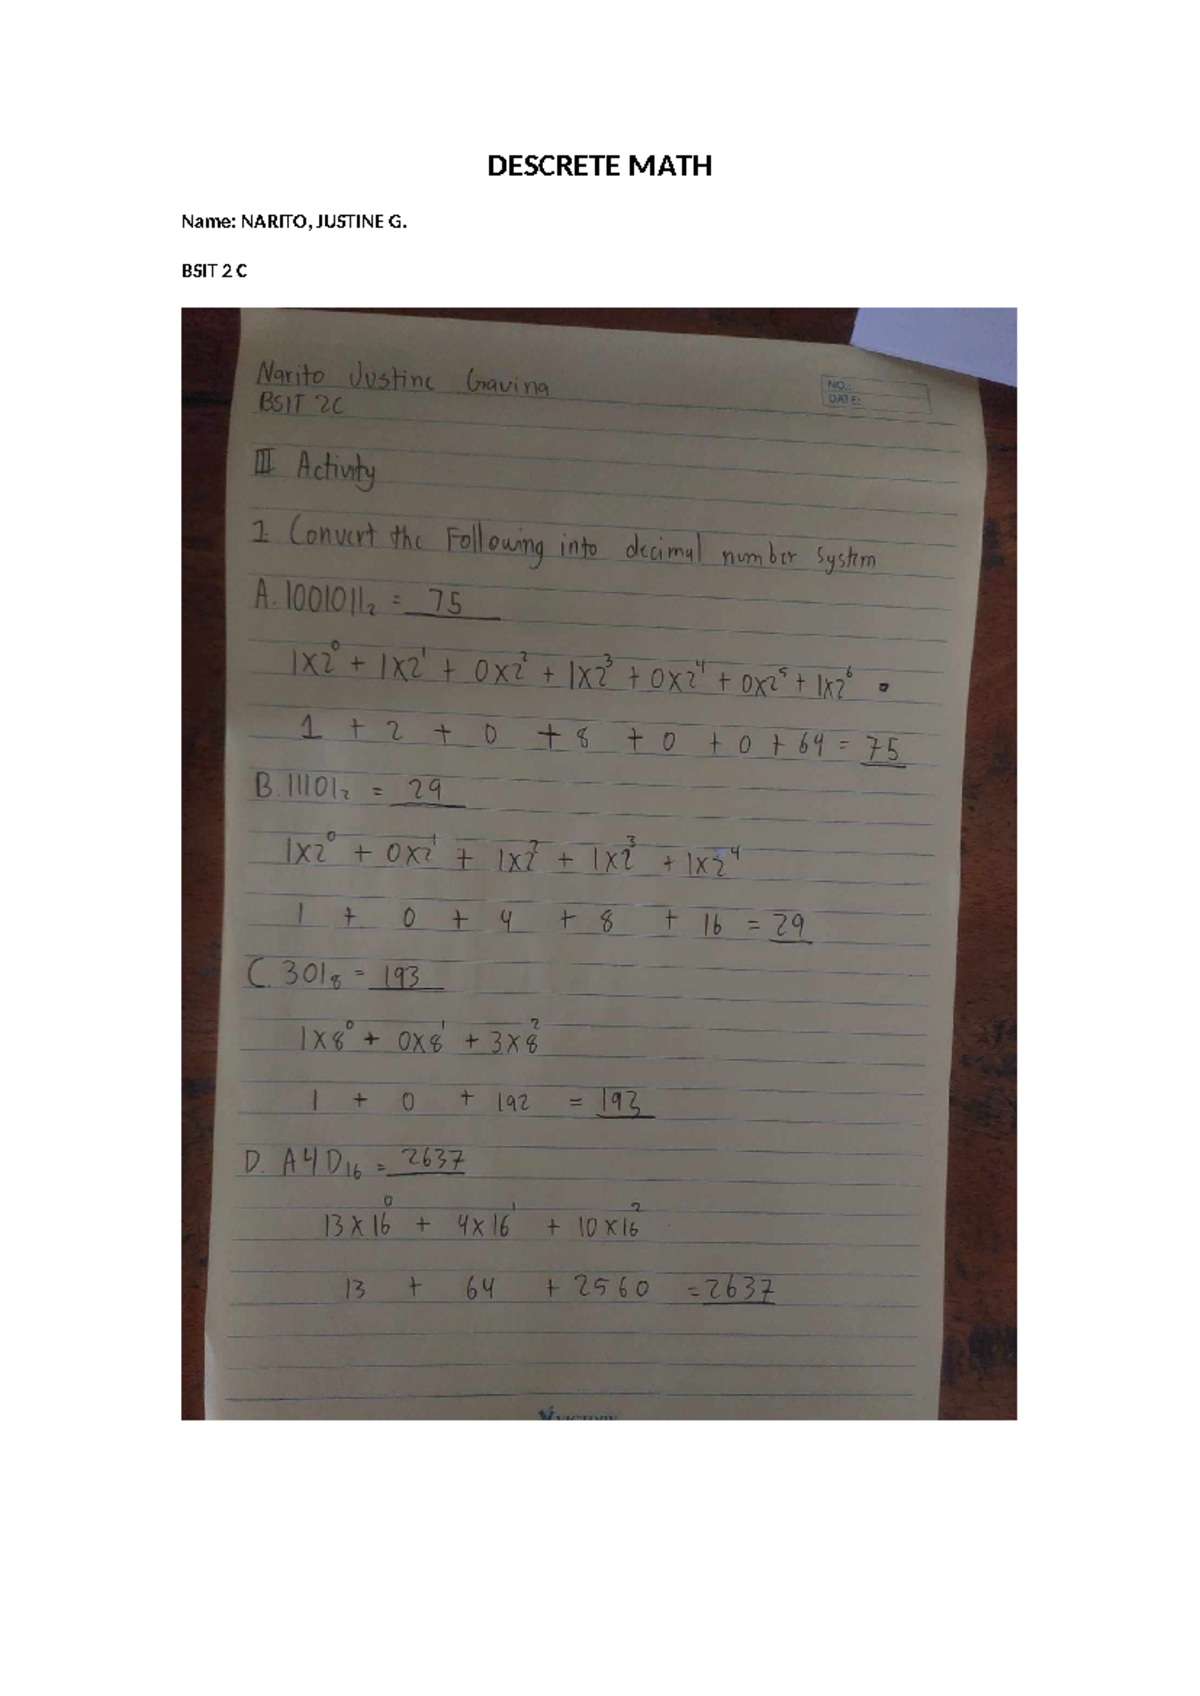 DESCRETE MATH
Name: NARITO, JUSTINE G.
BSIT 2 C
Narito Justine Gavina
NO.:
DATE:
BSIT 2C
III Activity
1. Convert the Following into decimal number system
A. 1001011₂ = 75
1x2⁰ + 1x2¹ + 0x2² + 1x2³ + 0x2⁴ + 0x2⁵ + 1x2⁶
1 + 2 + 0 + 8 + 0 + 0 + 64 = 75
B. 11101₂ = 29
1x2⁰ + 0x2¹ + 1x2² + 1x2³ + 1x2⁴
1 + 0 + 4 + 8 + 16 = 29
C. 301₈ = 193
1x8⁰ + 0x8¹ + 3x8²
1 + 0 + 192 = 193
D. A4D₁₆ = 2637
13x16⁰ + 4x16¹ + 10x16²
13 + 64 + 2560 = 2637